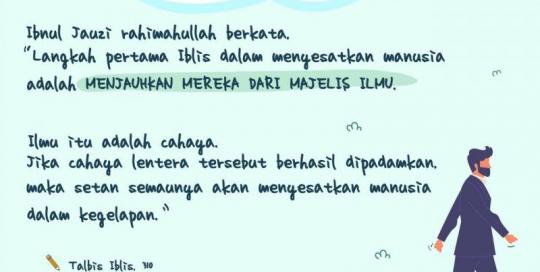 Ibnul Jauzi rahimahullah berkata.
"Langkah pertama Iblis dalam menyesatkan manusia
adalah MENJAUHKAN MEREKA DARI MAJELIS ILMU.
Ilmu itu adalah cahaya.
Jika cahaya lentera tersebut berhasil dipadamkan.
maka setan semaunya akan menyesatkan manusia
dalam kegelapan."
Talbis Iblis. 310